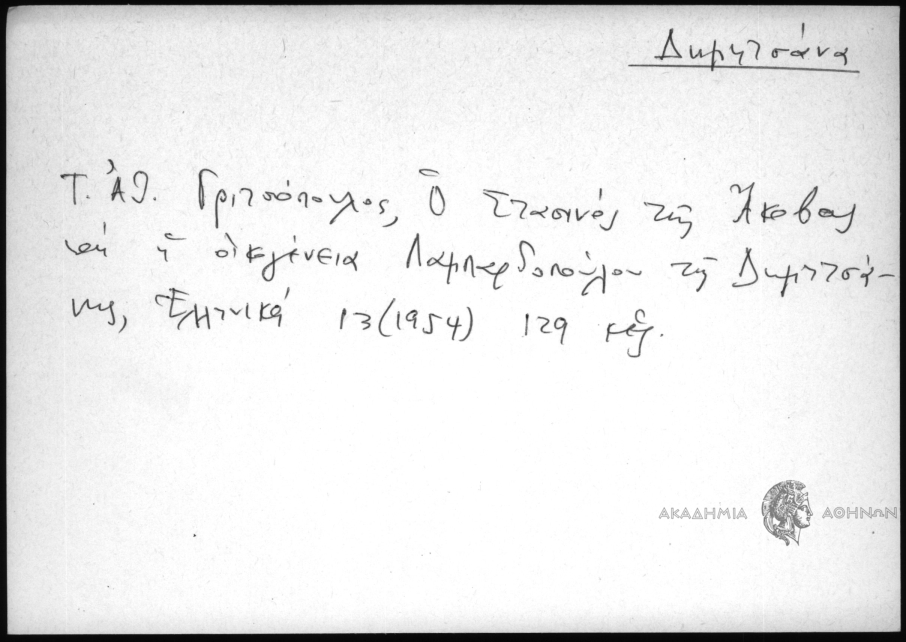 Δημητσάνα
Τ. Ἀθ. Γριτσόπουλος, Ὁ Στασινός τῆς Ἄκοβας
καί ἡ οἰκογένεια Λαμπαρδοπούλου τῆς Δημητσά-
νης, Ἑλληνικά 13 (1954) 129 κἑξ.
ΑΚΑΔΗΜΙΑ ΑΘΗΝΩΝ